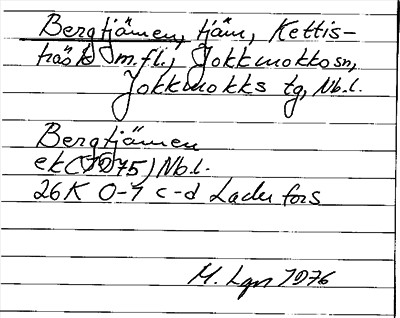 Bergtjärnen, tjärn, Kettis-
träsk m.fl., Jokkmokk sn,
Jokkmokks tg, Nb.l.
Bergtjärnen
ek (1975) Nb.l.
26K 0-1 c-d Ladufors
M. Lgn 1976